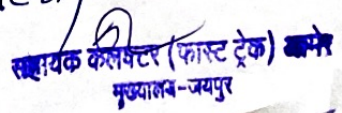 सहायक कलेक्टर (फास्ट ट्रेक) आमेर
मुख्यालय-जयपुर